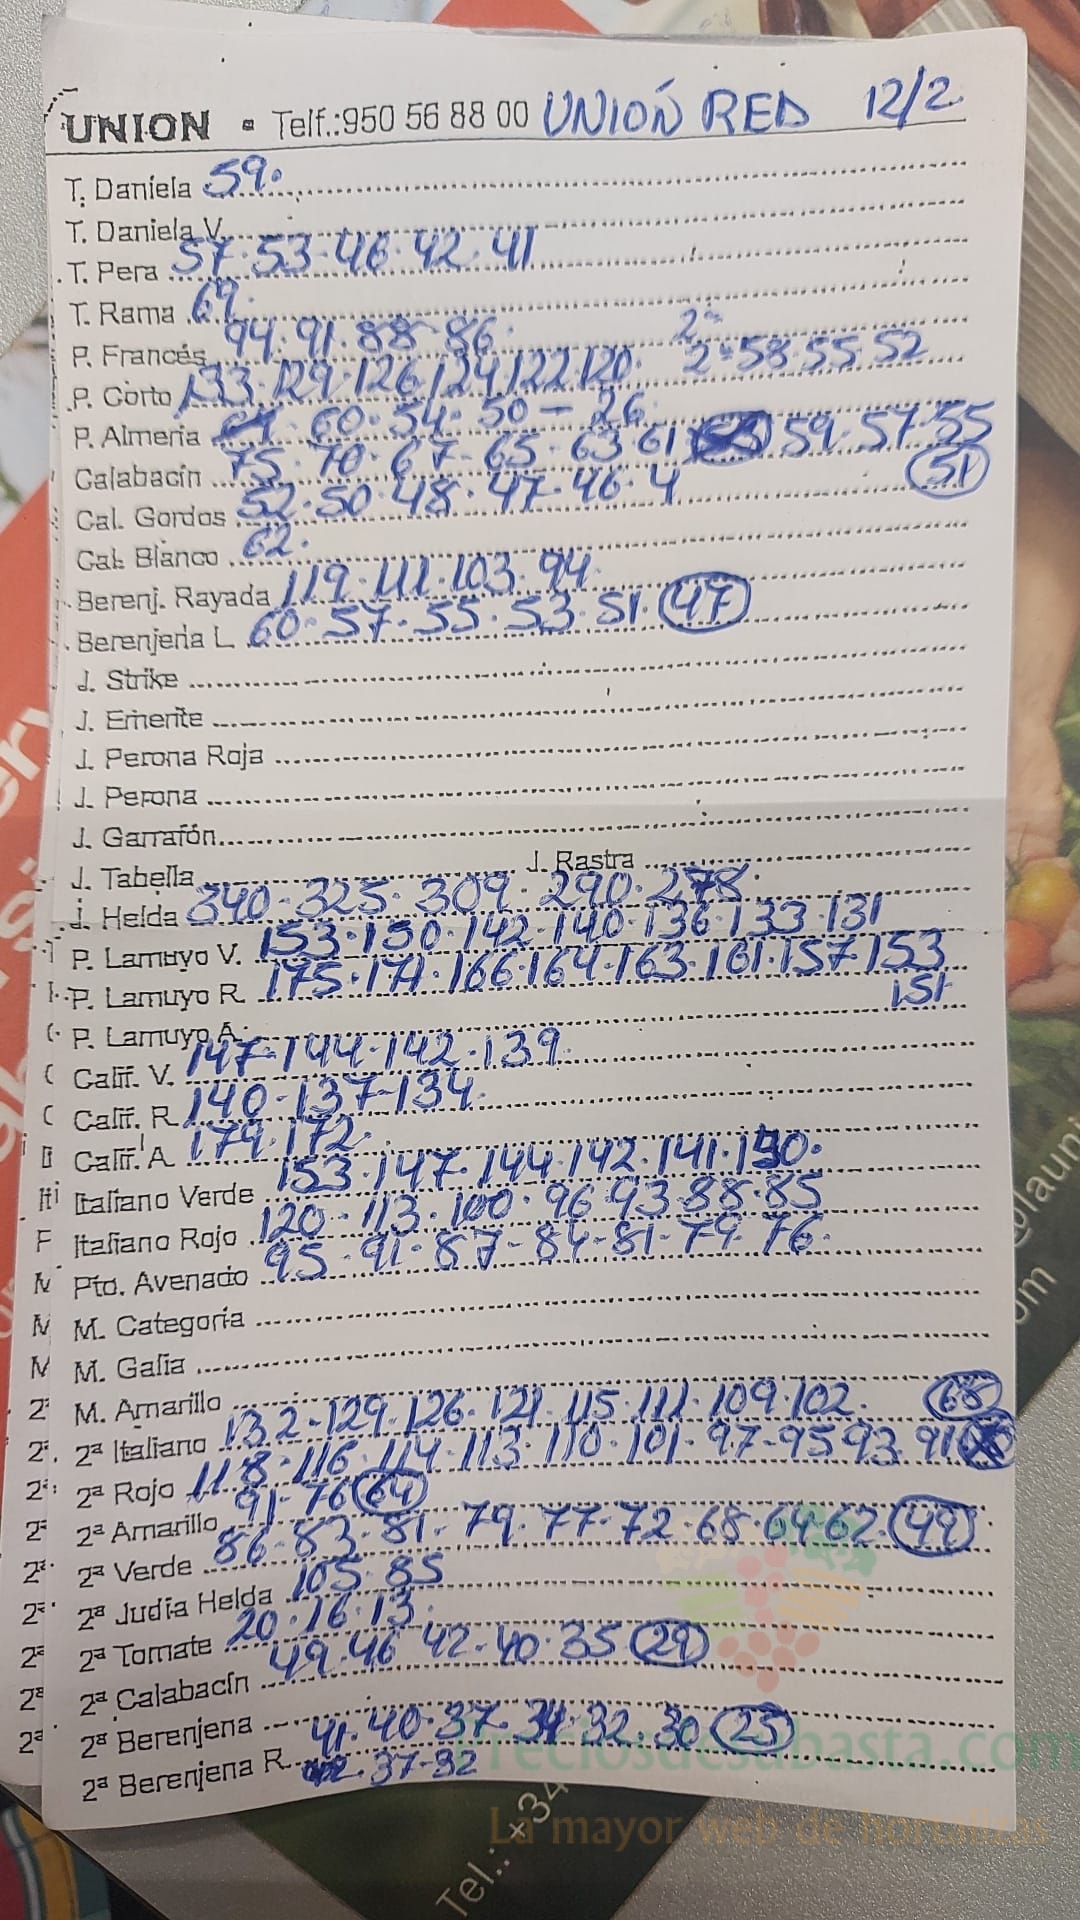 UNION • Telf.:950 56 88 00 UNIÓN RED 12/2
T. Daniela 59.
T. Daniela V.
T. Pera 57.53-46.42.41
T. Rama 69.
P. Francés 94.91.88-86. 2ª
P. Corto 133.129.126/124/122/120. 2ª58.55.52
P. Almería 60.54.50-26.
Calabacín 75.70.67-65.63.61 59.57.55
Cal. Gordos 52.50.48.47-46.4 51
Cal. Blanco 62.
Berenj. Rayada 119.111.103.94.
Berenjena L 60.57.55.53.51.47
J. Strike
J. Emerite
J. Perona Roja
J. Perona
J. Garrafón
J. Tabella J. Rastra
J. Helda 340.325.309.290.278.
P. Lamuyo V. 153.150.142.140.136.133.131
P. Lamuyo R. 175.171.166.164.163.161.157.153
151
P. Lamuyo A.
Calif. V. 147-144-142.139.
Calif. R. 140.137-134.
Calif. A 179.172.
Italiano Verde 153.147.144.142.141.130.
Italiano Rojo 120.113.100.96.93.88.85
Pto. Avenado 95.91.87-84-81.79.76.
M. Categoría
M. Galia
M. Amarillo
2ª Italiano 132-129.126.121.115.111.109.102. 68
2ª Rojo 118.116.114.113.110.101.97-95 93.91
2ª Amarillo 91-76 64
2ª Verde 86.83.81.79.77-72.68.64.62.49
2ª Judía Helda 105.85
2ª Tomate 20.16.13.
2ª Calabacín 49.46 42-40.35 29
2ª Berenjena
2ª Berenjena R. 41.40.37.34.32.30 25
37-32
Preciosdesubasta.com
La mayor web de hortalizas
Tel.: +34
@launi
om